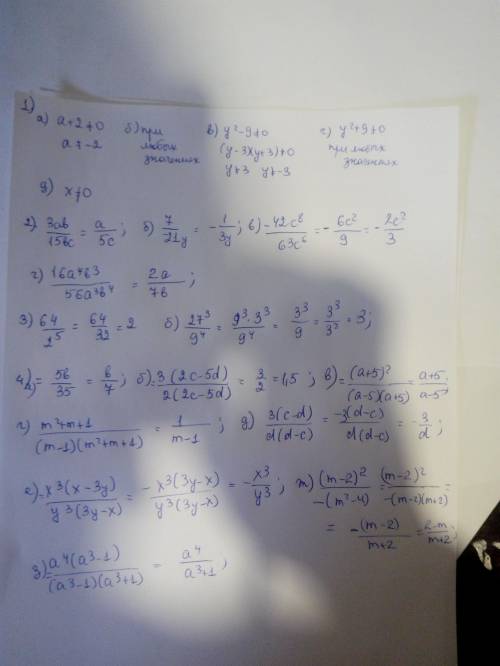 1)
а) a+2≠0 б) при в) y²-9≠0 г) y²+9≠0
a≠-2 любых (y-3)(y+3)≠0 при любых
значениях y≠3 y≠-3 значениях
д) x≠0
2) 3ab/15bc = a/5c; б) 7/21y = -1/3y; в) -42c⁸/63c⁶ = -6c²/9 = -2c²/3
г) 16a⁴b³/56a³b⁴ = 2a/7b;
3) 64/2⁵ = 64/32 = 2 б) 27³/9⁴ = 9³·3³/9⁴ = 3³/9 = 3³/3² = 3;
4) = 5b/35 = b/7; б) = 3(2c-5d)/2(2c-5d) = 3/2 = 1,5; в) = (a+5)²/(a-5)(a+5) = a+5/a-5;
г) = m²+m+1/(m-1)(m²+m+1) = 1/m-1; д) 3(c-d)/d(d-c) = -3(d-c)/d(d-c) = -3/d;
е) = x³(x-3y)/y³(3y-x) = -x³(3y-x)/y³(3y-x) = -x³/y³; т) (m-2)²/-(m²-4) = (m-2)²/-(m-2)(m+2) =
= -(m-2)/m+2 = 2-m/m+2;
з) = a⁴(a³-1)/(a³-1)(a³+1) = a⁴/a³+1;